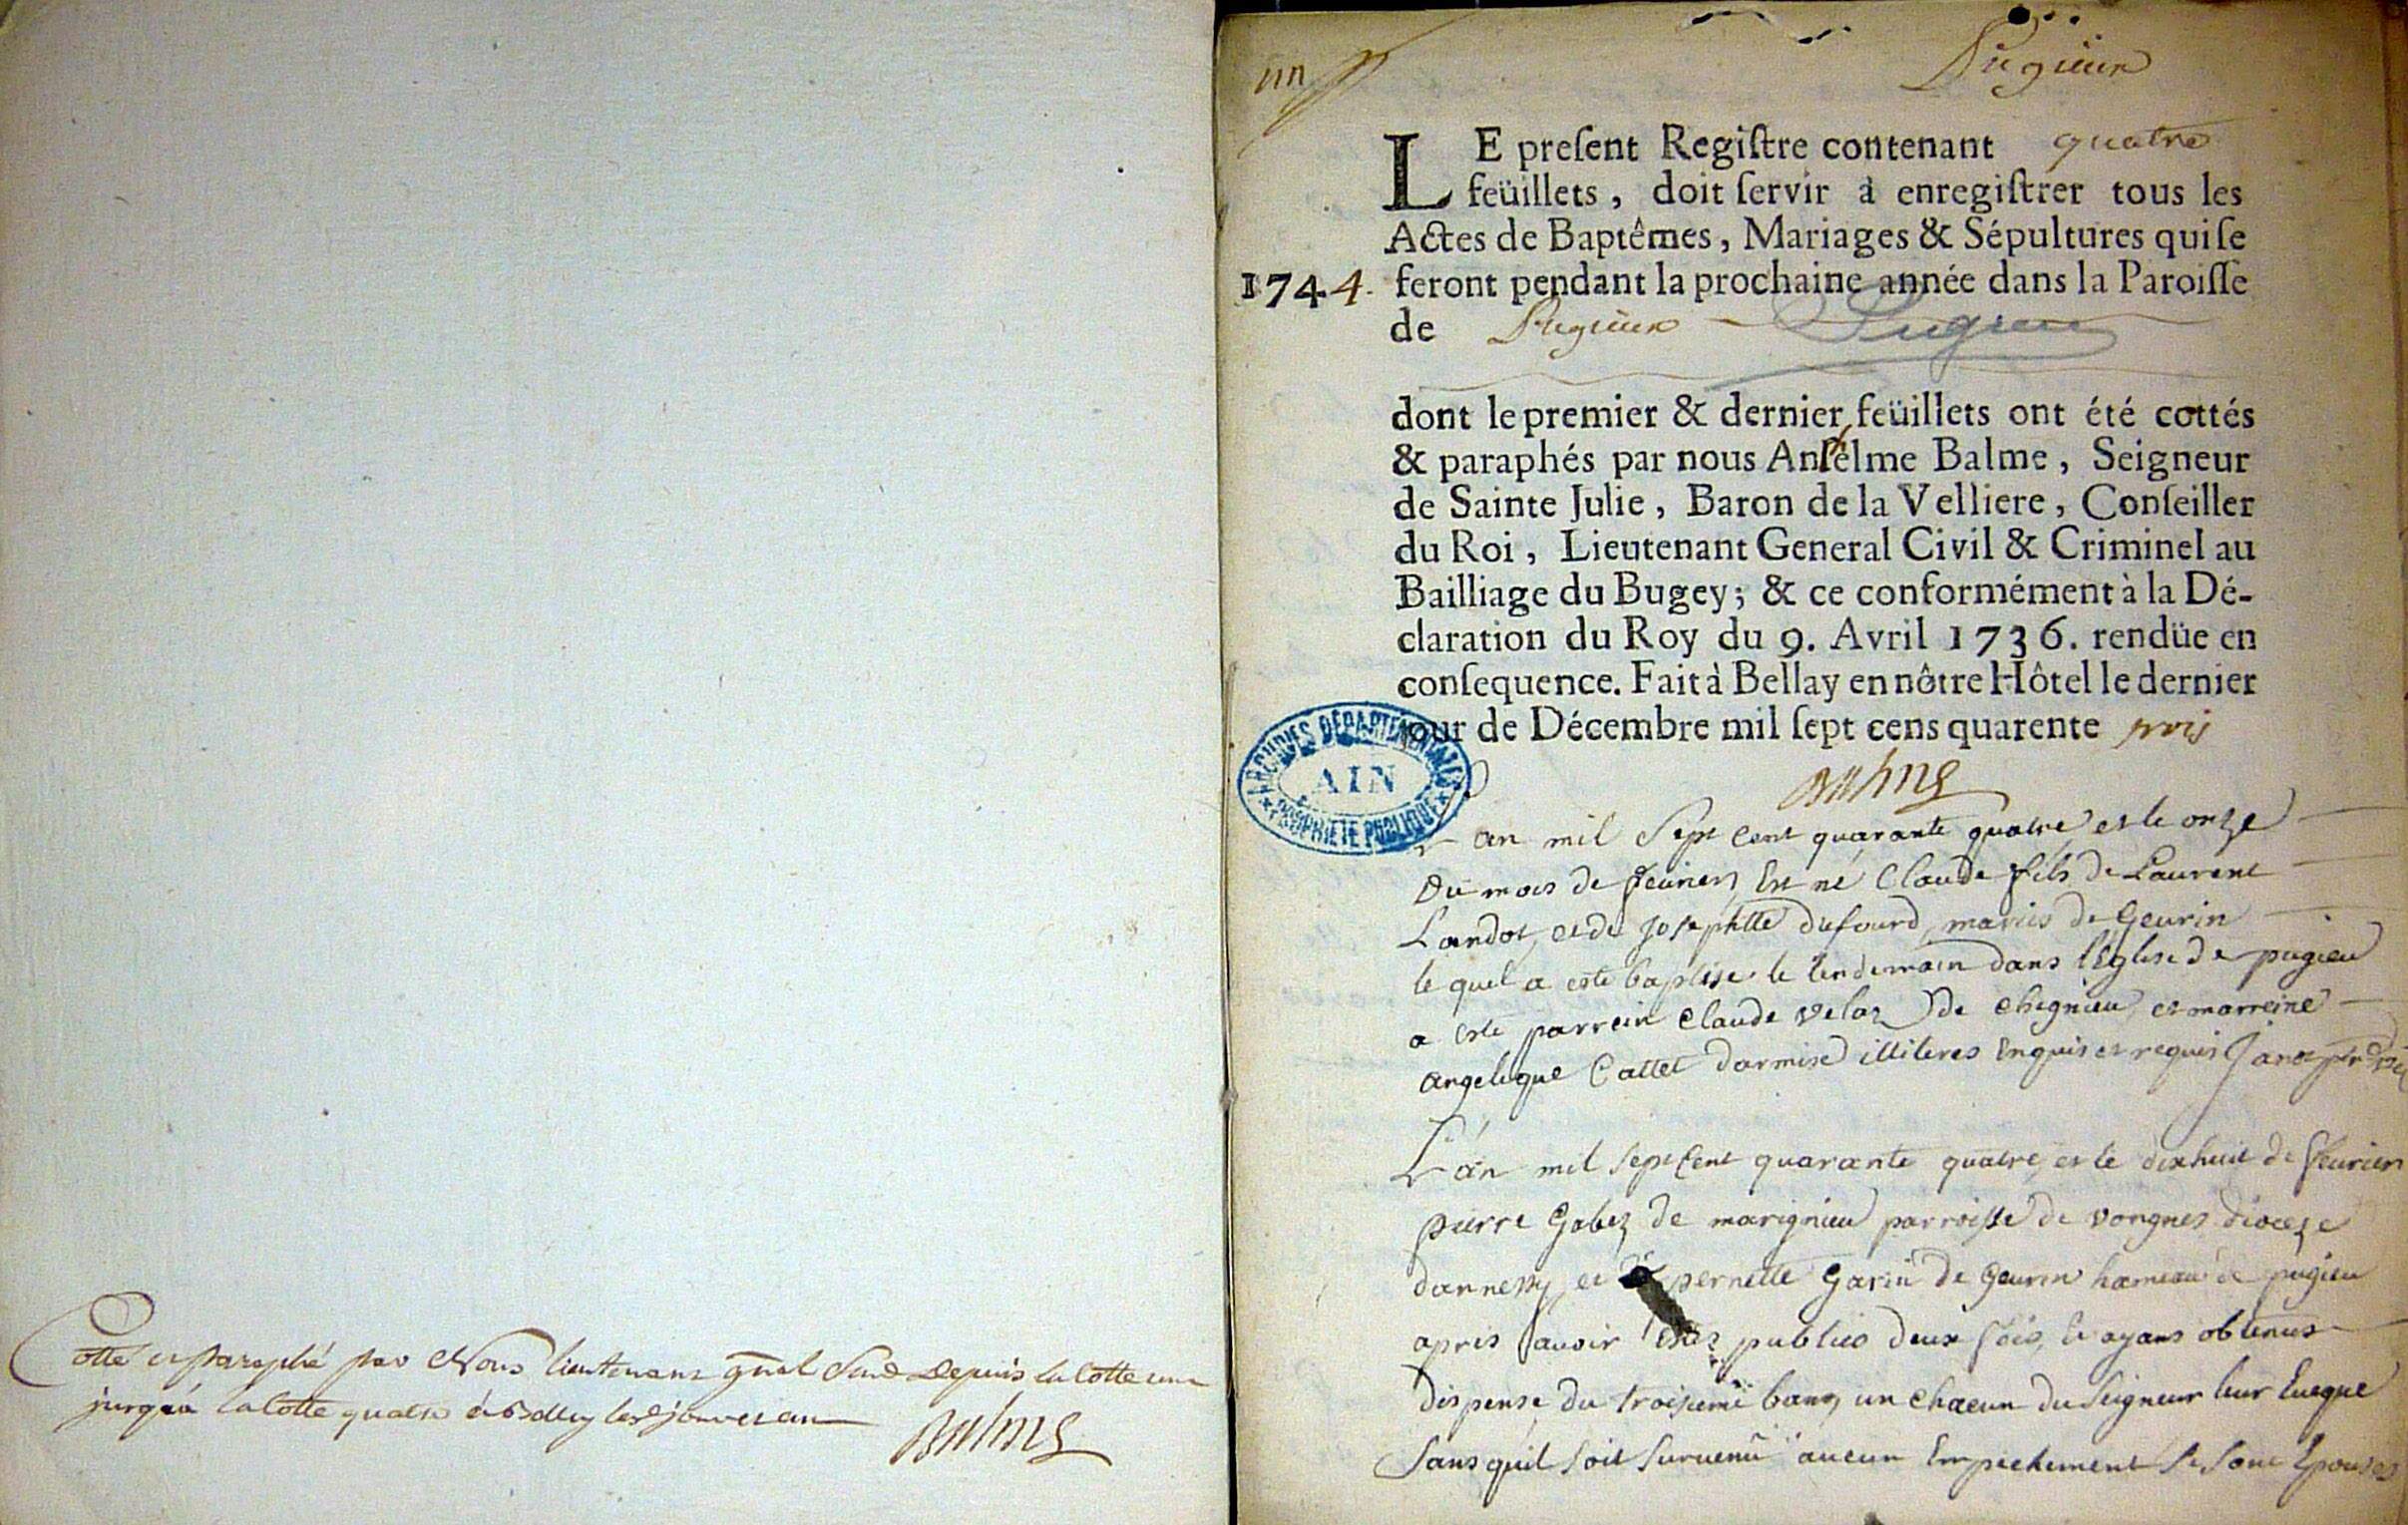 Cotté et Paraphé par Nous lieutenant gñal Susd Depuis la Cotte une
jusqu'à la Cotte quatre à Belley les jour et an
Balme
un
Pugieux
LE preſent Regiſtre contenant quatre
feüillets, doit ſervir à enregiſtrer tous les
Actes de Baptêmes, Mariages & Sépultures qui ſe
1744. feront pendant la prochaine année dans la Paroiſſe
de Pugieux Pugieu
dont le premier & dernier feüillets ont été cottés
& paraphés par nous Anſelme Balme, Seigneur
de Sainte Julie, Baron de la Velliere, Conſeiller
du Roi, Lieutenant General Civil & Criminel au
Bailliage du Bugey; & ce conformément à la Dé-
claration du Roy du 9. Avril 1736. rendüe en
conſequence. Fait à Bellay en nôtre Hôtel le dernier
jour de Décembre mil ſept cens quarente trois
ARCHIVES DÉPARTEMENTALES
AIN
PROPRIÉTÉ PUBLIQUE
Balme
L'an mil Sept Cent quarante quatre et le onze
Du mois de feurier Est né Claude fils de Laurent
Landot et de Josephtte dufourd mariés de Geurin
le quel a esté baptisé le lendemain dans l'Eglise de pugieu
a esté parrein Claude velaz de Chegnieu et marreine
angelique Cattet darmise illiteres Enquis et requis
L'an mil sept Cent quarante quatre et le dixhuit de feurier
pierre Gabez de marignieu parroisse de vongnes dioceze
dannessy et pernette Garin de Geurin hameau de pugieu
apres auoir Estés publiés deux fois, et ayans obtenus
dispense du troisieme banq un chacun du Seigneur leur Eueque
Sans quil soit suruenu aucun Empechement se sont Epousés